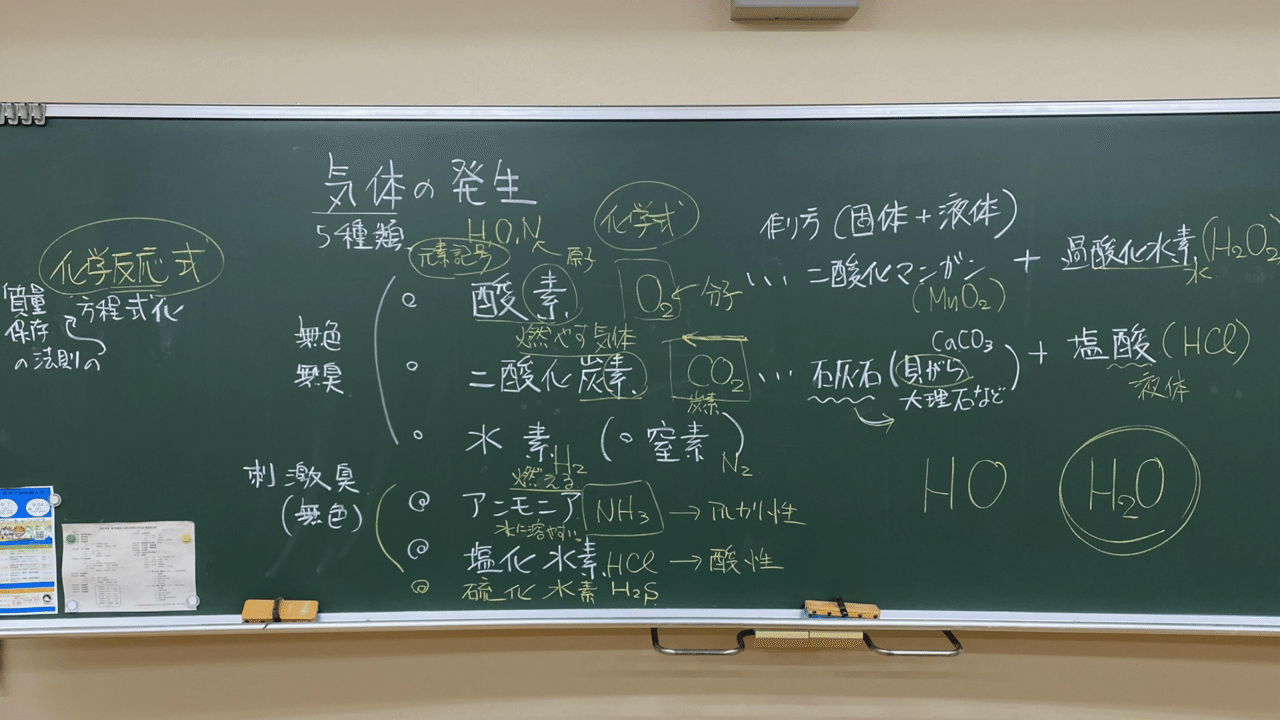 気体の発生
5種類
HO,N
化学式
元素記号
原子
化学反応式
方程式化
質量
保存
の法則の
作り方(固体+液体)
酸素
O₂
分子
… 二酸化マンガン + 過酸化水素(H₂O₂
(MnO₂)
水
燃やす気体
無色
無臭
二酸化炭素
CO₂
炭素
… 石灰石(貝がら
大理石など)
CaCO₃
+ 塩酸(HCl)
液体
水素 (○窒素)
H₂
N₂
燃える
刺激臭
(無色)
アンモニア NH₃ → アルカリ性
水に溶やすい
塩化水素 HCl → 酸性
硫化水素 H₂S
HO
H₂O